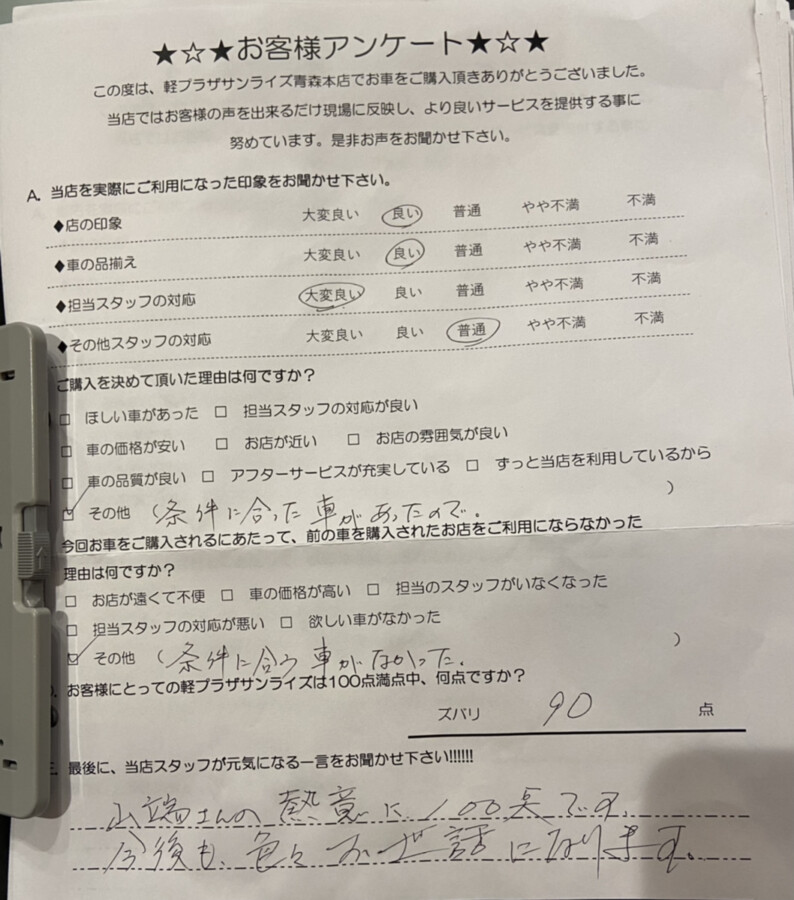 ★☆★お客様アンケート★☆★
この度は、軽プラザサンライズ青森本店でお車をご購入頂きありがとうございました。
当店ではお客様の声を出来るだけ現場に反映し、より良いサービスを提供する事に
努めています。是非お声をお聞かせ下さい。
A. 当店を実際にご利用になった印象をお聞かせ下さい。
◆店の印象 大変良い 良い 普通 やや不満 不満
◆車の品揃え 大変良い 良い 普通 やや不満 不満
◆担当スタッフの対応 大変良い 良い 普通 やや不満 不満
◆その他スタッフの対応 大変良い 良い 普通 やや不満 不満
ご購入を決めて頂いた理由は何ですか？
□ ほしい車があった □ 担当スタッフの対応が良い
□ 車の価格が安い □ お店が近い □ お店の雰囲気が良い
□ 車の品質が良い □ アフターサービスが充実している □ ずっと当店を利用しているから
☑ その他 (条件に合った車があったので。)
今回お車をご購入されるにあたって、前の車を購入されたお店をご利用にならなかった
理由は何ですか？
□ お店が遠くて不便 □ 車の価格が高い □ 担当のスタッフがいなくなった
□ 担当スタッフの対応が悪い □ 欲しい車がなかった
☑ その他 (条件に合う車がなかった。)
お客様にとっての軽プラザサンライズは100点満点中、何点ですか？
ズバリ 90 点
最後に、当店スタッフが元気になる一言をお聞かせ下さい!!!!!!
山端さんの熱意に100点です。
今後も、色々お世話になります。